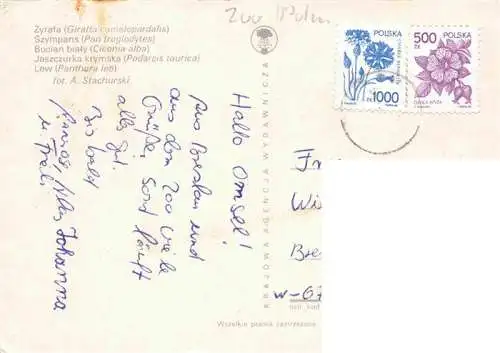 Żyrafa (Giraffa camelopardalis)
Szympans (Pan troglodytes)
Bocian biały (Ciconia alba)
Jaszczurka krymska (Podarcis taurica)
Lew (Panthera leo)
fot. A. Stachurski
Zoo
POLSKA
zł 1000
POLSKA
500
ZŁ
KRAJOWA AGENCJA WYDAWNICZA
Hallo Omsel!
Aus Breslau und
aus dem Zoo viele
Grüße. Sonst läuft
alles gut.
Bis bald
Johanna
u. Fredi
Wszelkie prawa zastrzeżone
W-67